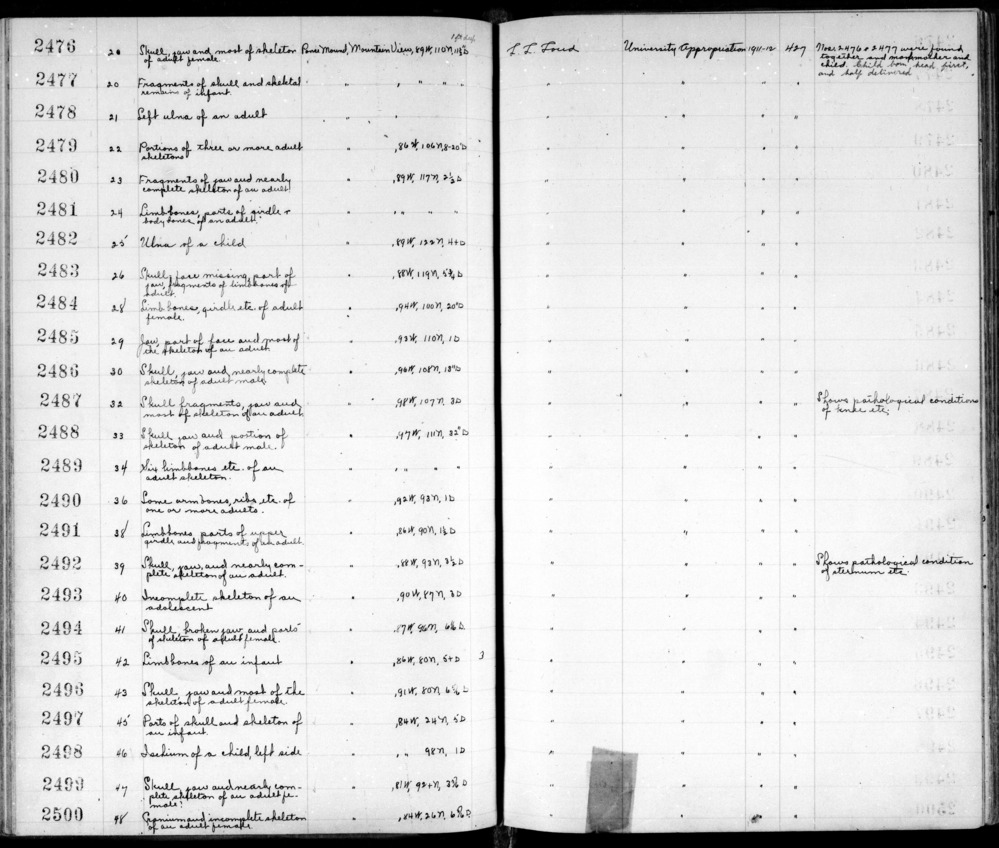 2476 20 Skull, jaw and most of skeleton Ponce Mound, Mountain View, 89W, 110N, L. L. Loud University Appropriation 1911-12 427 Nos. 2476 & 2477 were found
of adult female together and mother and
child. Child born head first,
and half delivered
2477 20 Fragments of skull and skeletal " " " " " " " "
remains of infant.
2478 21 Left ulna of an adult " " " " " "
2479 22 Portions of three or more adult " 86W, 106N, 8-20"D " " " "
skeletons
2480 23 Fragments of jaw and nearly " 89W, 117N, 2½D " " " "
complete skeleton of an adult
2481 24 Limbbones, parts of girdle & " " " " " " " "
body bones of an adult.
2482 25 Ulna of a child " 89W, 122N, 4+D " " " "
2483 26 Skull, face missing, part of " 88W, 119N, " " " "
jaw, fragments of limbbones of
adult.
2484 28 Limbbones, girdle etc. of adult " 94W, 100N, 20"D " " " "
female.
2485 29 Jaw, part of face and most of " 93W, 110N, 1D " " " "
the skeleton of an adult
2486 30 Skull, jaw and nearly complete " 96W, 108N, 18"D " " " "
skeleton of adult male
2487 32 Skull fragments, jaw and " 98W, 107N, 3D " " " " Shows pathological condition
most of skeleton of an adult of knee etc.
2488 33 Skull jaw and portion of " 97W, 111N, 32"D " " " "
skeleton of adult male.
2489 34 Six limbbones etc. of an " " " " " " " "
adult skeleton.
2490 36 Some armbones, ribs, etc. of " 92W, 93N, 1D " " " "
one or more adults.
2491 38 Limbbones parts of upper " 86W, 90N, 1½D " " " "
girdle and fragments of an adult
2492 39 Skull, jaw, and nearly com- " 88W, 93N, 3½D " " " " Shows pathological condition
plete skeleton of an adult. of sternum etc.
2493 40 Incomplete skeleton of an " 90W, 87N, 3D " " " "
adolescent
2494 41 Skull, broken jaw and parts " 87W, " " " "
of skeleton of adult female.
2495 42 Limbbones of an infant " 86W, 80N, 5+D 3 " " " "
2496 43 Skull, jaw and most of the " 91W, 80N, " " " "
skeleton of adult female
2497 45 Parts of skull and skeleton of " 84W, 24N, 5D " " " "
an infant.
2498 46 Ischium of a child, left side " " " 98N, 1D " " " "
2499 47 Skull, jaw and nearly com- " 81W, 92+N, " " " "
plete skeleton of an adult fe-
male.
2500 48 Cranium and incomplete skeleton " 84W, 26N, " " " "
of an adult female